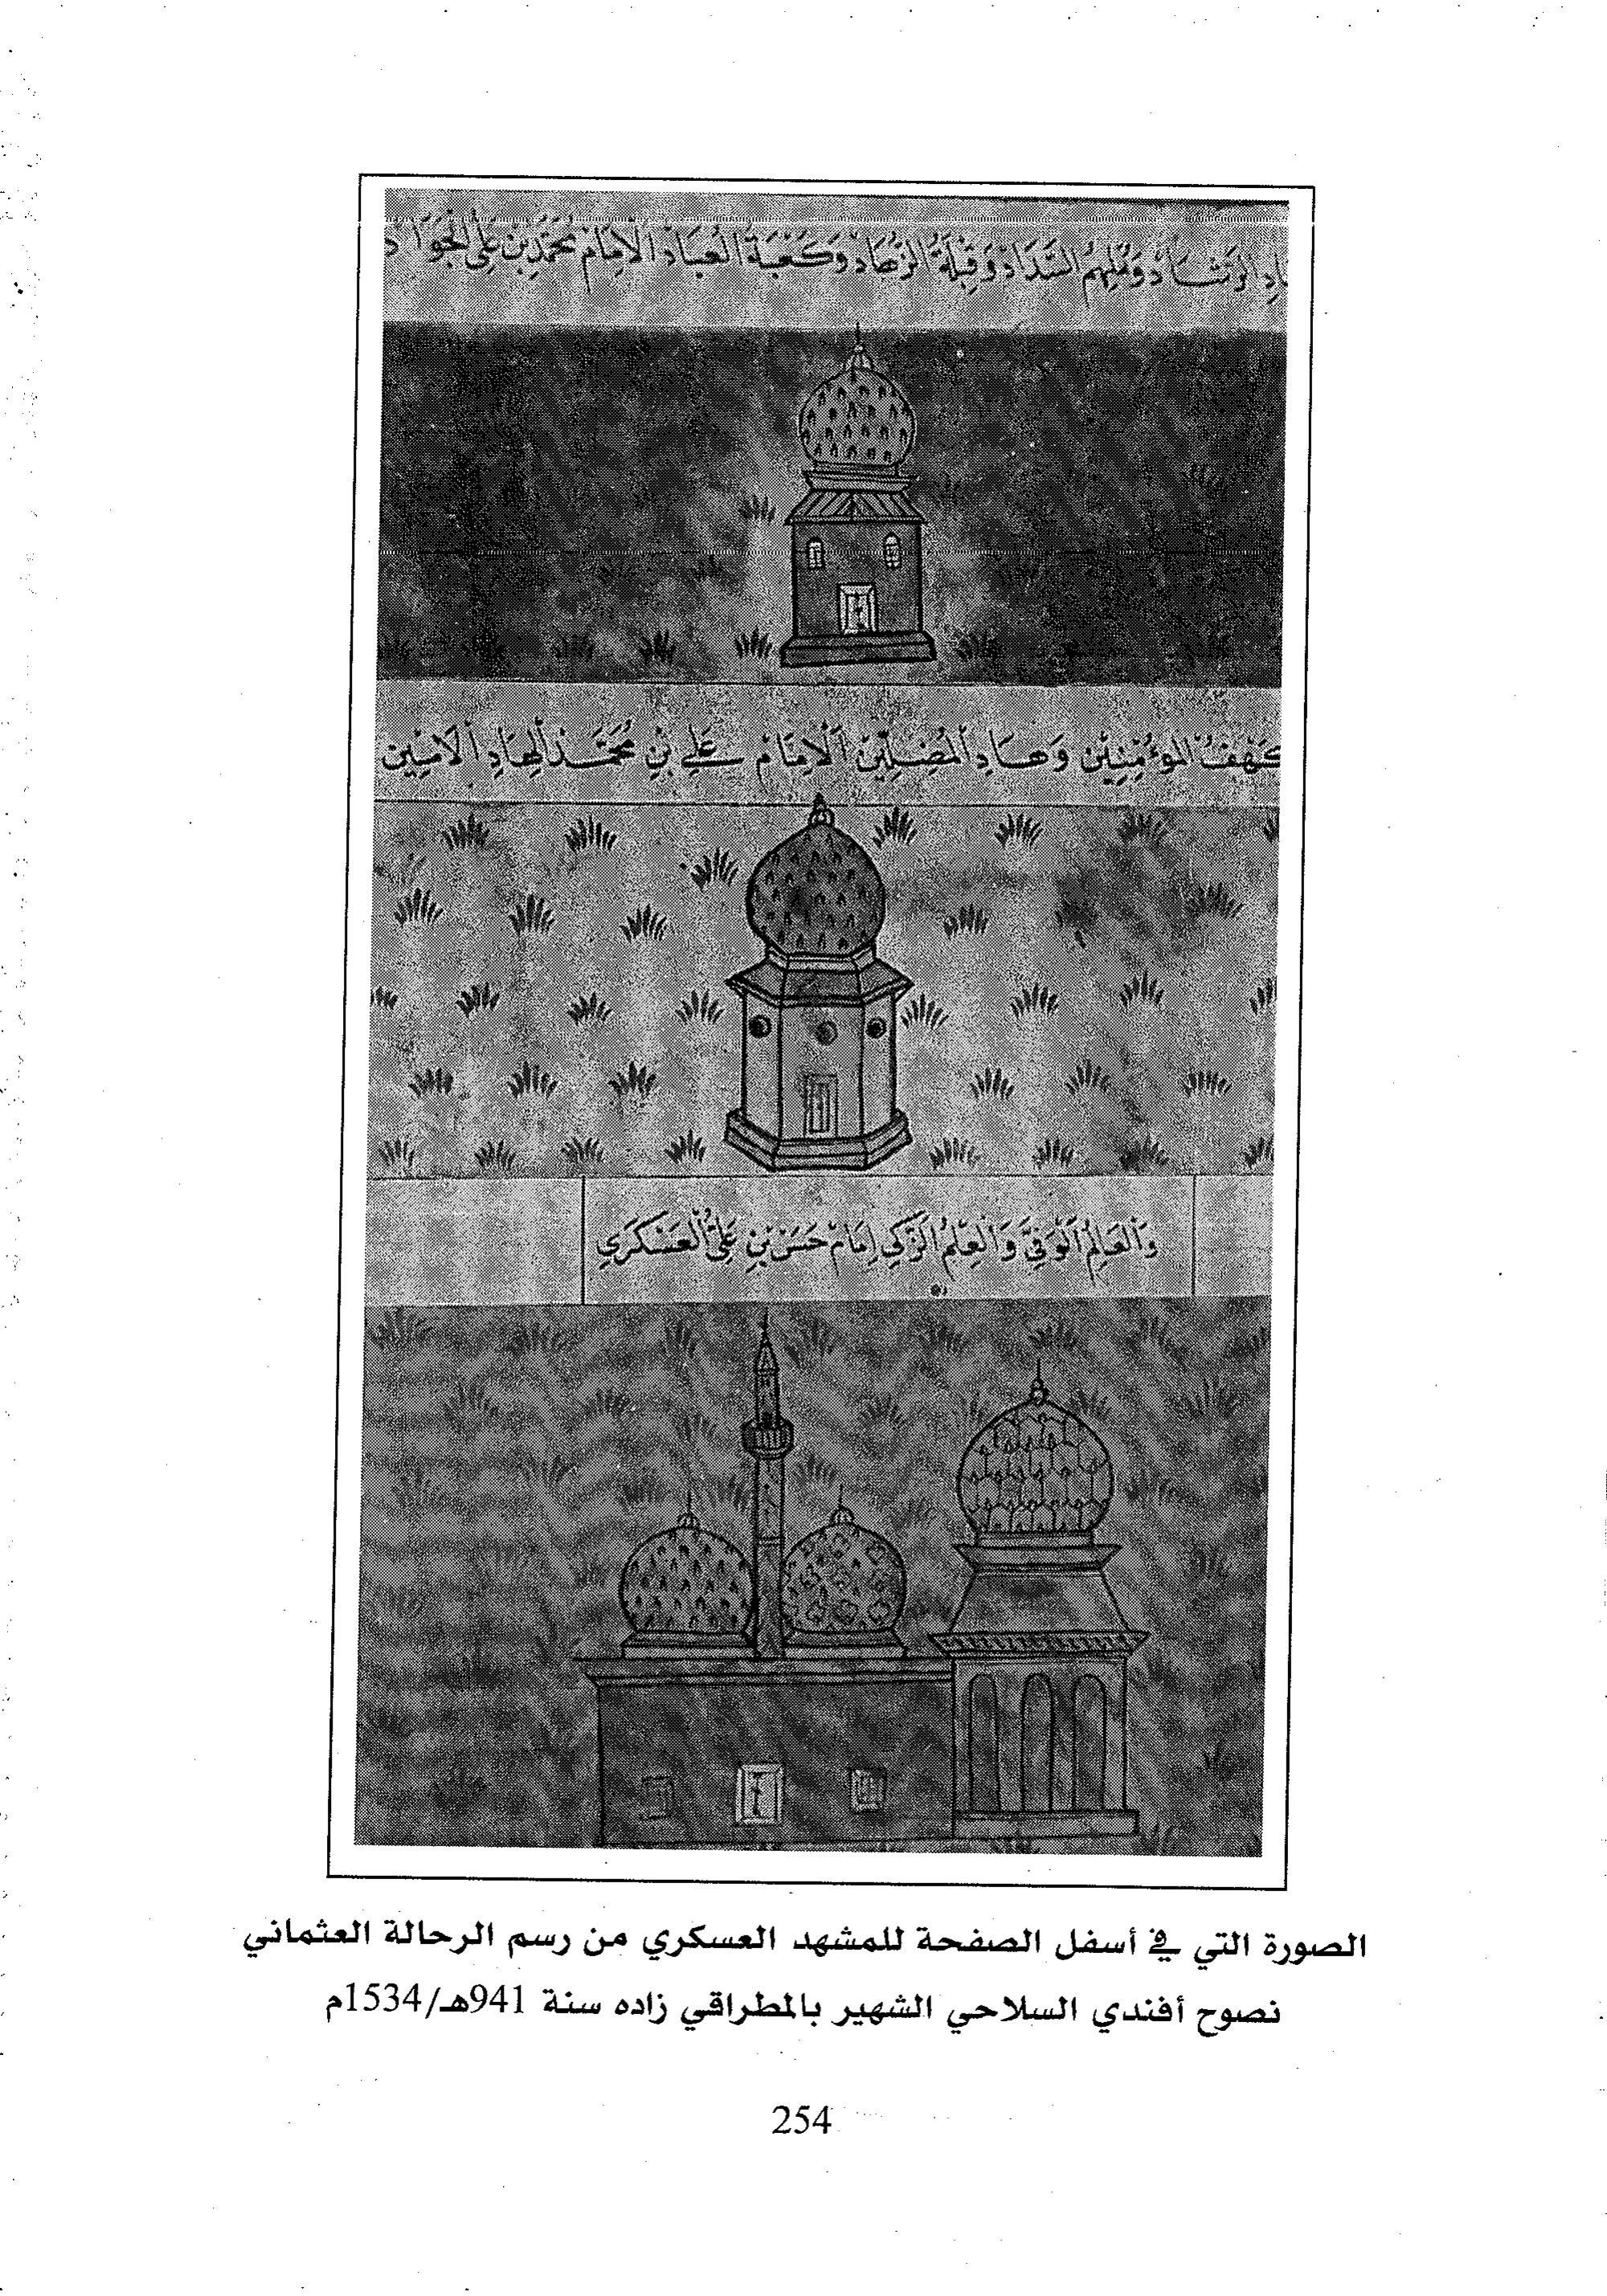 الرَشَاد وَمُلْهِمُ السَّدَاد وَقِبْلَةُ الزُّهَاد وَكَعْبَةُ الْعُبَاد الْاِمَامْ مُحَمَّد بِنْ عَلِى الْجَوَاد
كَهْفُ الْمُؤْمِنِين وَهَادِ الْمُضِلِّين اَلْاِمَامْ عَلِي بْنِ مُحَمَّد الْهَادِ الْاَمِين
وَالْعَالِمُ الْوَفِيّ وَالْعِلْمُ الزَّكِي اِمَامْ حَسَنْ بْن عَلِيُّ الْعَسْكَرِي
الصورة التي في أسفل الصفحة للمشهد العسكري من رسم الرحالة العثماني
نصوح أفندي السلاحي الشهير بالمطراقي زاده سنة 941هـ/1534م
254